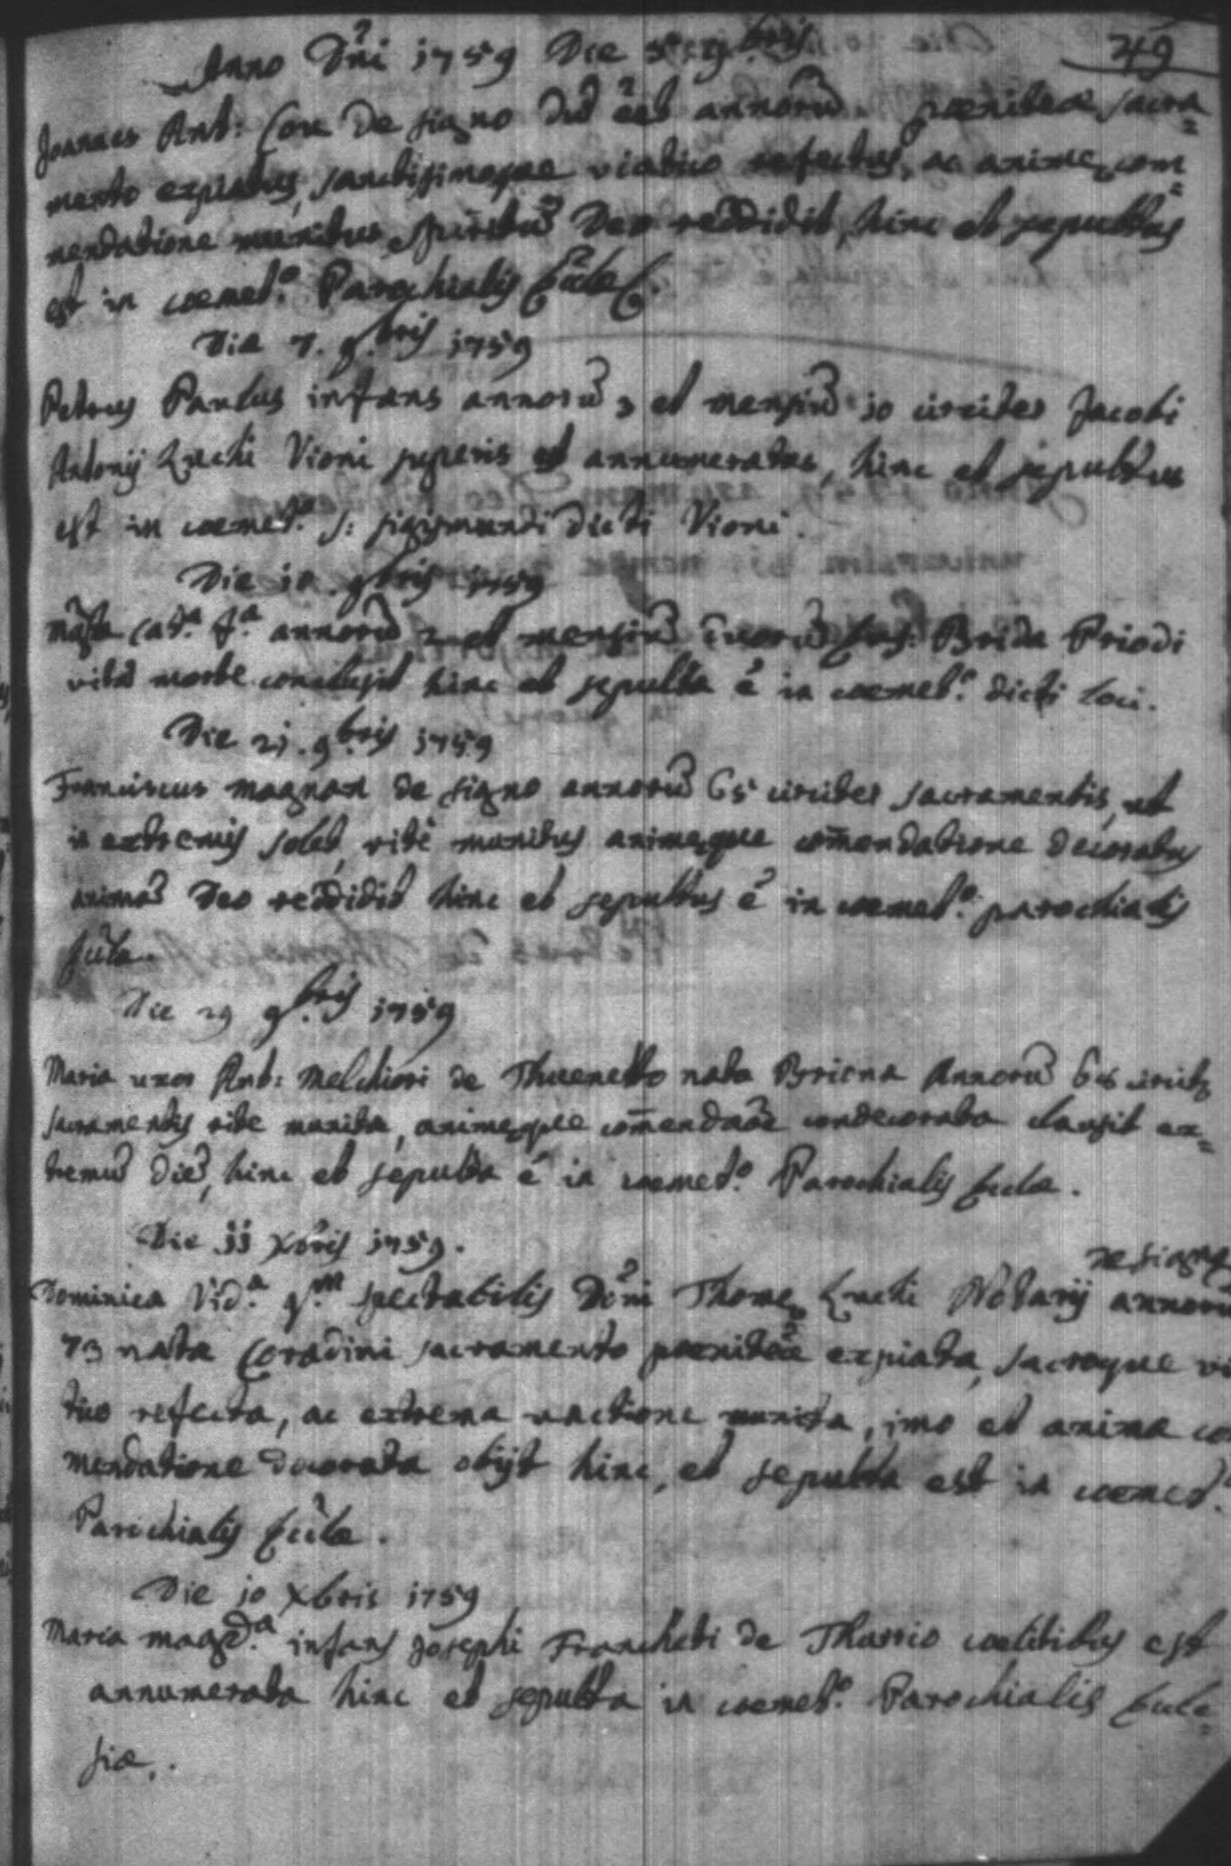 49
Anno Dñi 1759 Die 5 9.bris
Joannes Ant: de signo annorũ pœnitẽæ sacra=
mento expiatus, sanctissimoque viatico refectus, ac animæ com=
mendatione munitus spiritũ Deo reddidit, hinc et sepultus
est in coemet.o Parochialis Ecclæ.
Die 7. 9.bris 1759
Petrus Paulus infans annorũ 3 et mensiũ 10 circiter Jacobi
Antonij Zuechi Vioni superis est annumeratus, hinc et sepultus
est in coemet.o S: Sigismundi dicti Vioni.
Die 10 9bris 1759
Cat.a f.a annorũ 2 et mensiũ Brida Priodi
vitã morte conclusit hinc et sepulta ẽ in coemet.o dicti loci.
Die 21. 9.bris 1759
Franciscus magnan de signo annorũ 65 circiter sacramentis, ut
in extremis solet, rite munitus animæque com̃endatione decoratus
animã Deo reddidit hinc et sepultus ẽ in coemet.o parochialis
Ecclæ.
Die 29 9.bris 1759
Maria uxor Ant: Melchiori de Thuenetto nata Briena Annorũ 66 circitr
sacramentis rite munita, animæque com̃endaõe condecorata clausit ex=
tremũ diẽ, hinc et sepulta ẽ in coemet.o Parochialis Ecclæ.
Die 11 Xbris 1759.
de signo
Dominica Vid.a q.m spectabilis Dom̃i Thomæ Zuechi Notarij annorũ
73 nata Coradini sacramento pœnitẽæ expiata, sacroque via
tico refecta, ac extrema unctione munita, imo et anima co
mendatione decorata obijt hinc, et sepulta est in coemet.
Parochialis Ecclæ.
Die 10 Xbris 1759
Maria magd.a infans Josephi Francheti de Thassio coelitibus est
annumerata hinc et sepulta in coemet.o Parochialis Eccle=
siæ.